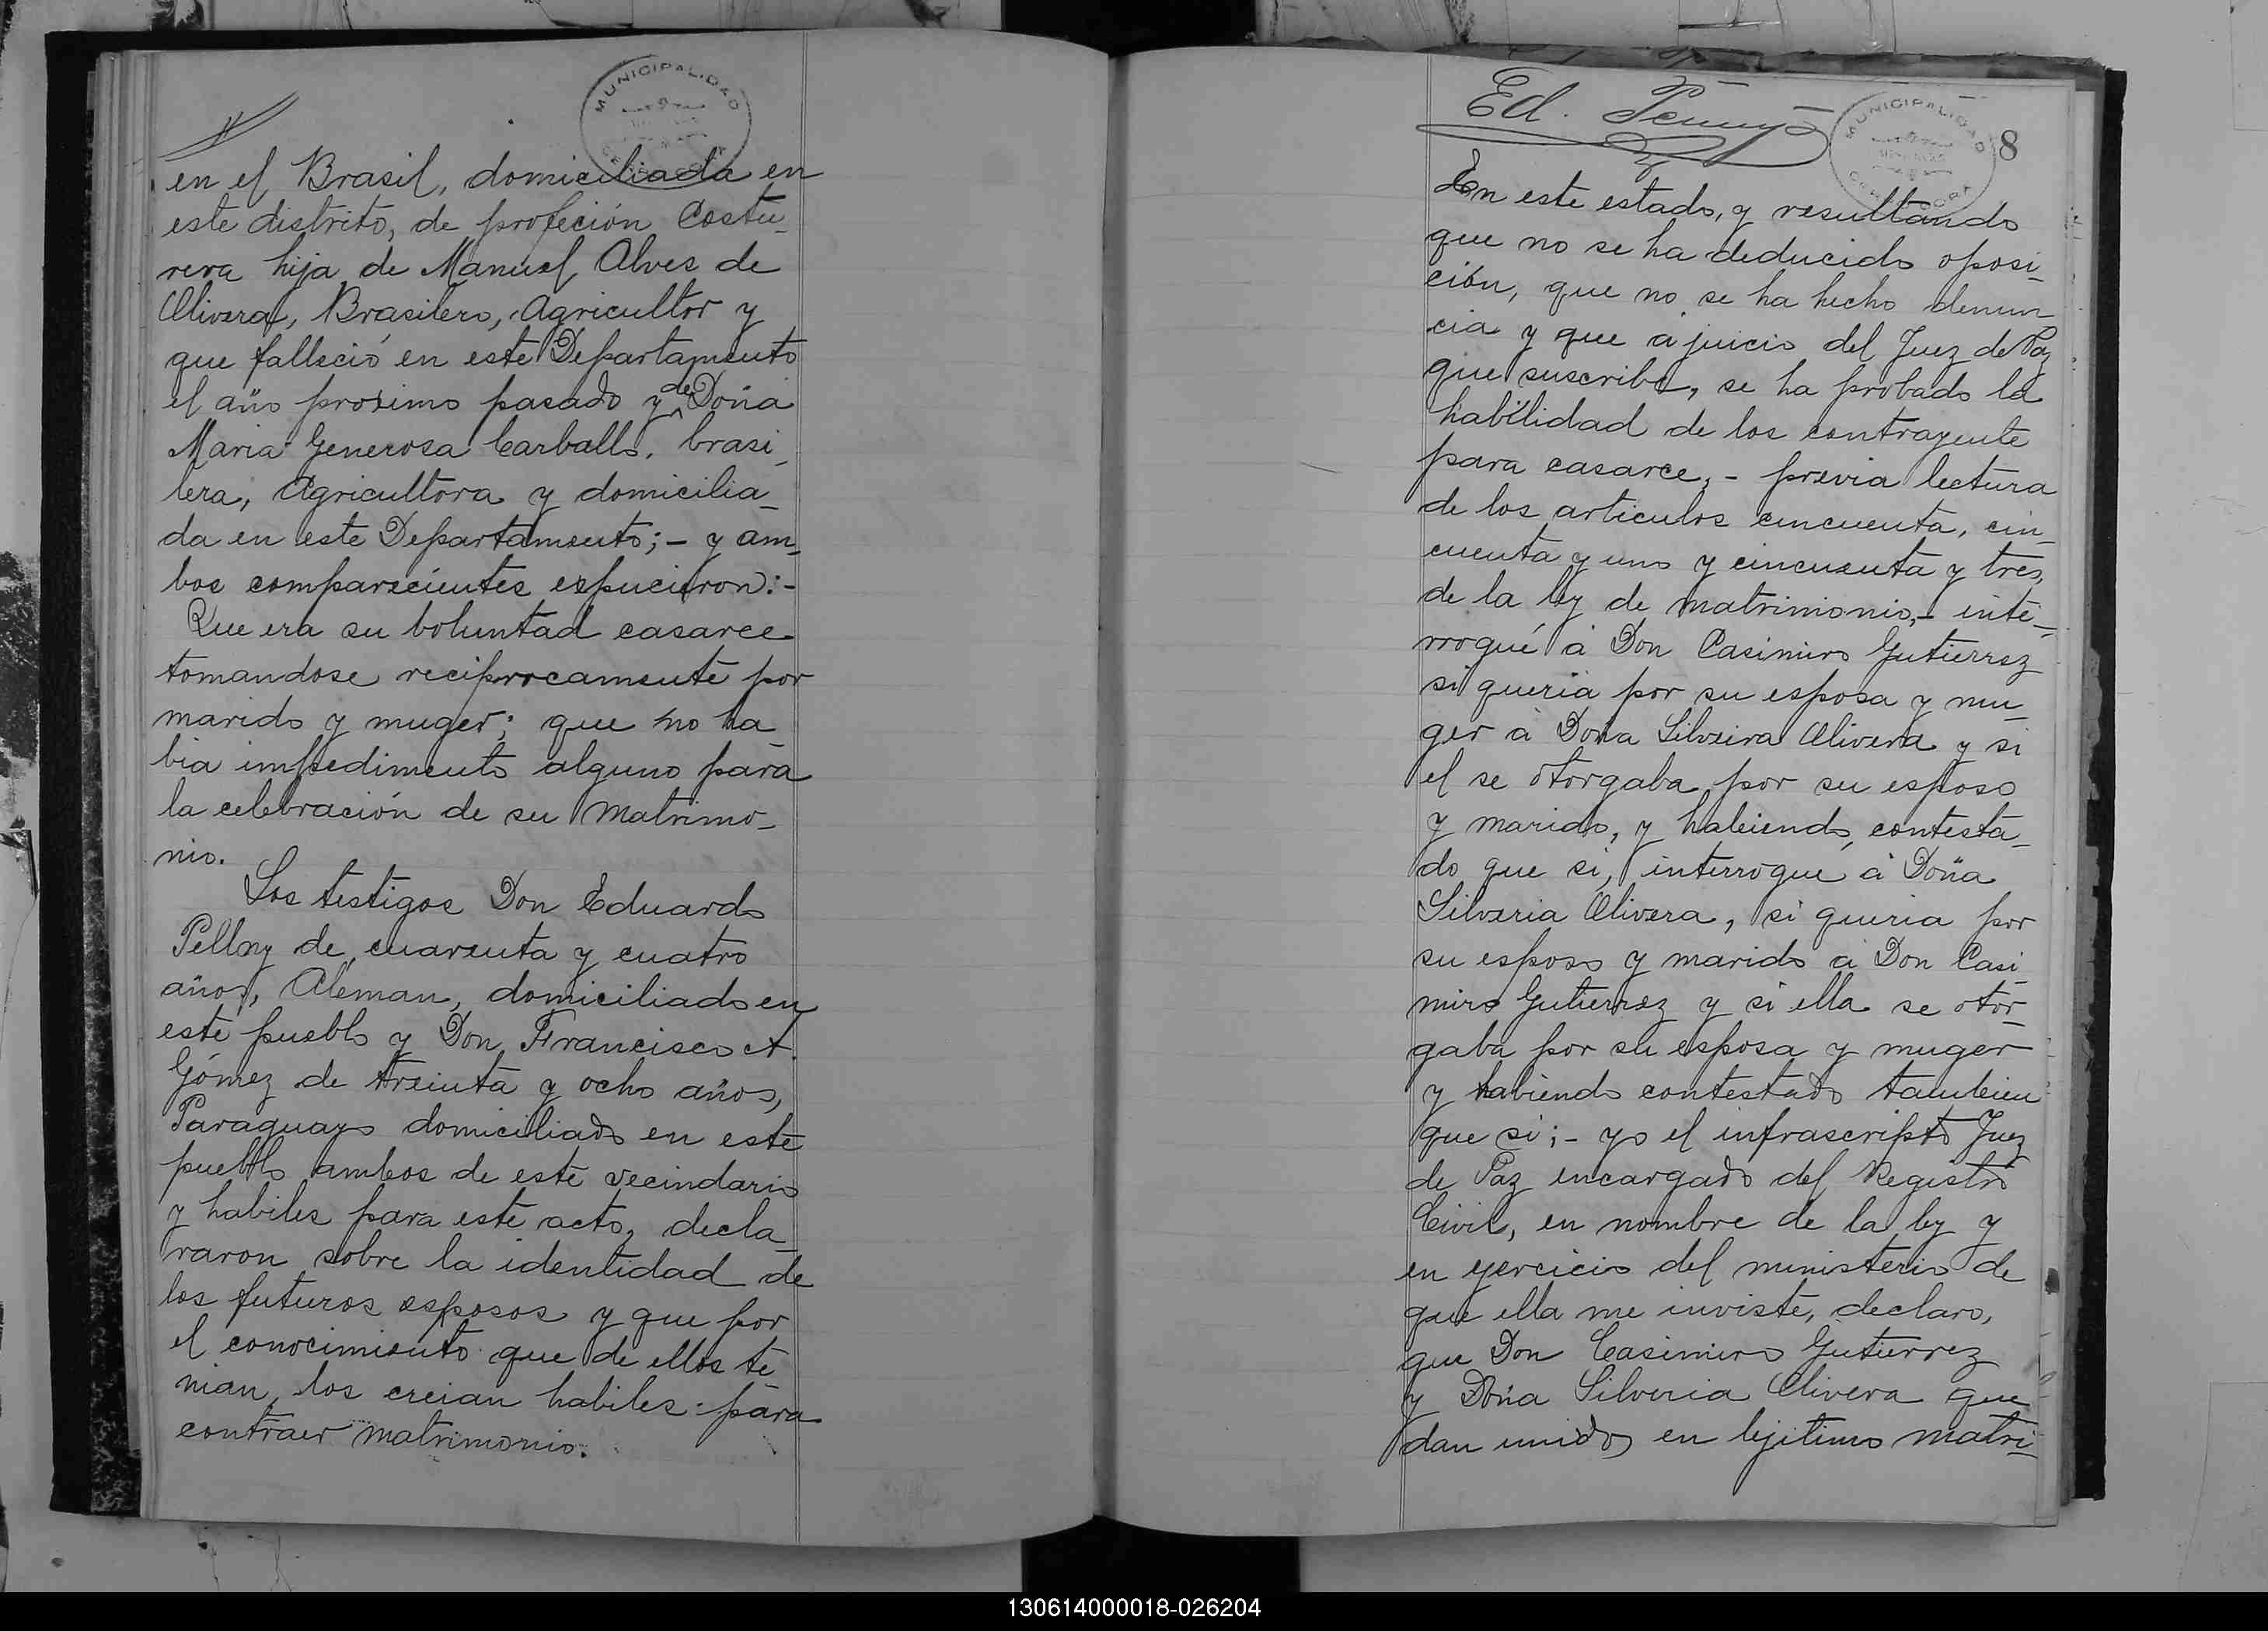 MUNICIPALIDAD
en el Brasil, domiciliada en
este distrito, de profeción Costu-
rera hija de Manuel Alves de
Olivera, Brasilero, Agricultor y
que falleció en este Departamento
el año proximo pasado y de Doña
Maria Generosa Carballo, brasi-
lera, Agricultora y domicilia-
da en este Departamento;- y am-
bos comparecientes espucieron:-
Que era su boluntad casarce
tomandose reciprocamente por
marido y muger; que no ha-
bia impedimento alguno para
la celebración de su Matrimo-
nio.
Los testigos Don Eduardo
Pellny de cuarenta y cuatro
años, Aleman, domiciliado en
este pueblo y Don Francisco A.
Gómez de treinta y ocho años,
Paraguayo domiciliado en este
pueblo ambos de este vecindario
y habiles para este acto, decla-
raron sobre la identidad de
los futuros esposos y que por
el conocimiento que de ellos te-
nian, los creian habiles para
contraer matrimonio.
Ed.
MUNICIPALIDAD
8
En este estado, y resultando
que no se ha deducido oposi-
ción, que no se ha hecho denun-
cia y que á juicio del Juez de Paz
que suscribe, se ha probado la
habilidad de los contrayente
para casarce,- previa lectura
de los articulos cincuenta, cin-
cuenta y uno y cincuenta y tres,
de la ley de matrimonio,- inte-
rrogué á Don Casimiro Gutierrez
si queria por su esposa y mu-
ger á Doña Silveira Olivera y si
el se otorgaba por su esposo
y marido, y habiendo contesta-
do que si, interrogué á Doña
Silveria Olivera, si queria por
su esposo y marido á Don Casi-
miro Gutierrez y si ella se otor-
gaba por su esposa y muger
y habiendo contestado tambien
que si;- yo el infrascripto Juez
de Paz encargado del Registro
Civil, en nombre de la ley y
en ejercicio del ministerio de
que ella me inviste, declaro,
que Don Casimiro Gutierrez
y Doña Silveria Olivera que
dan unidos en lejitimo matri-
130614000018-026204